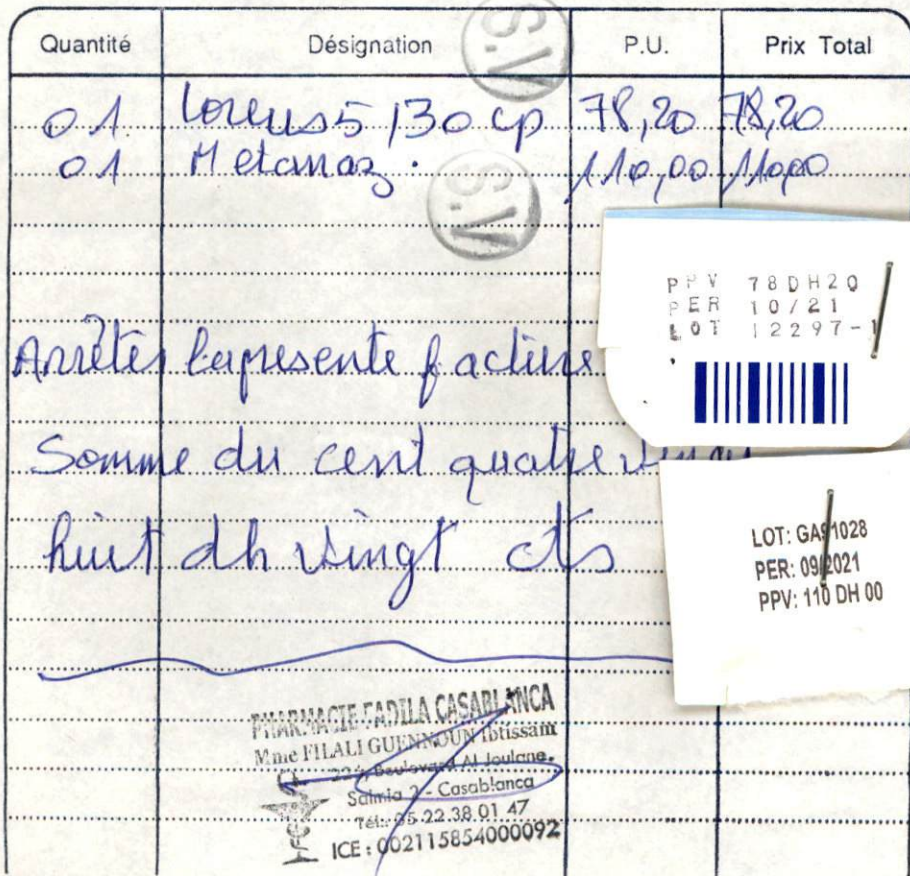 Quantité Désignation P.U. Prix Total
S.V
01 Lorcus 5 /30 cp 78,20 78,20
01 Metamaz. 110,00 110,00
S.V
PPV 78DH20
PER 10/21
LOT 12297-1
Arrêter la presente facture
Somme du cent quatre vingt
huit dh vingt cts
LOT: GA91028
PER: 09/2021
PPV: 110 DH 00
PHARMACIE FADILA CASABLANCA
Mme FILALI GUENNOUN Ibtissam
Boulevard Al Joulane.
Salmia 2 - Casablanca
Tél.: 05 22 38 01 47
ICE : 002115854000092